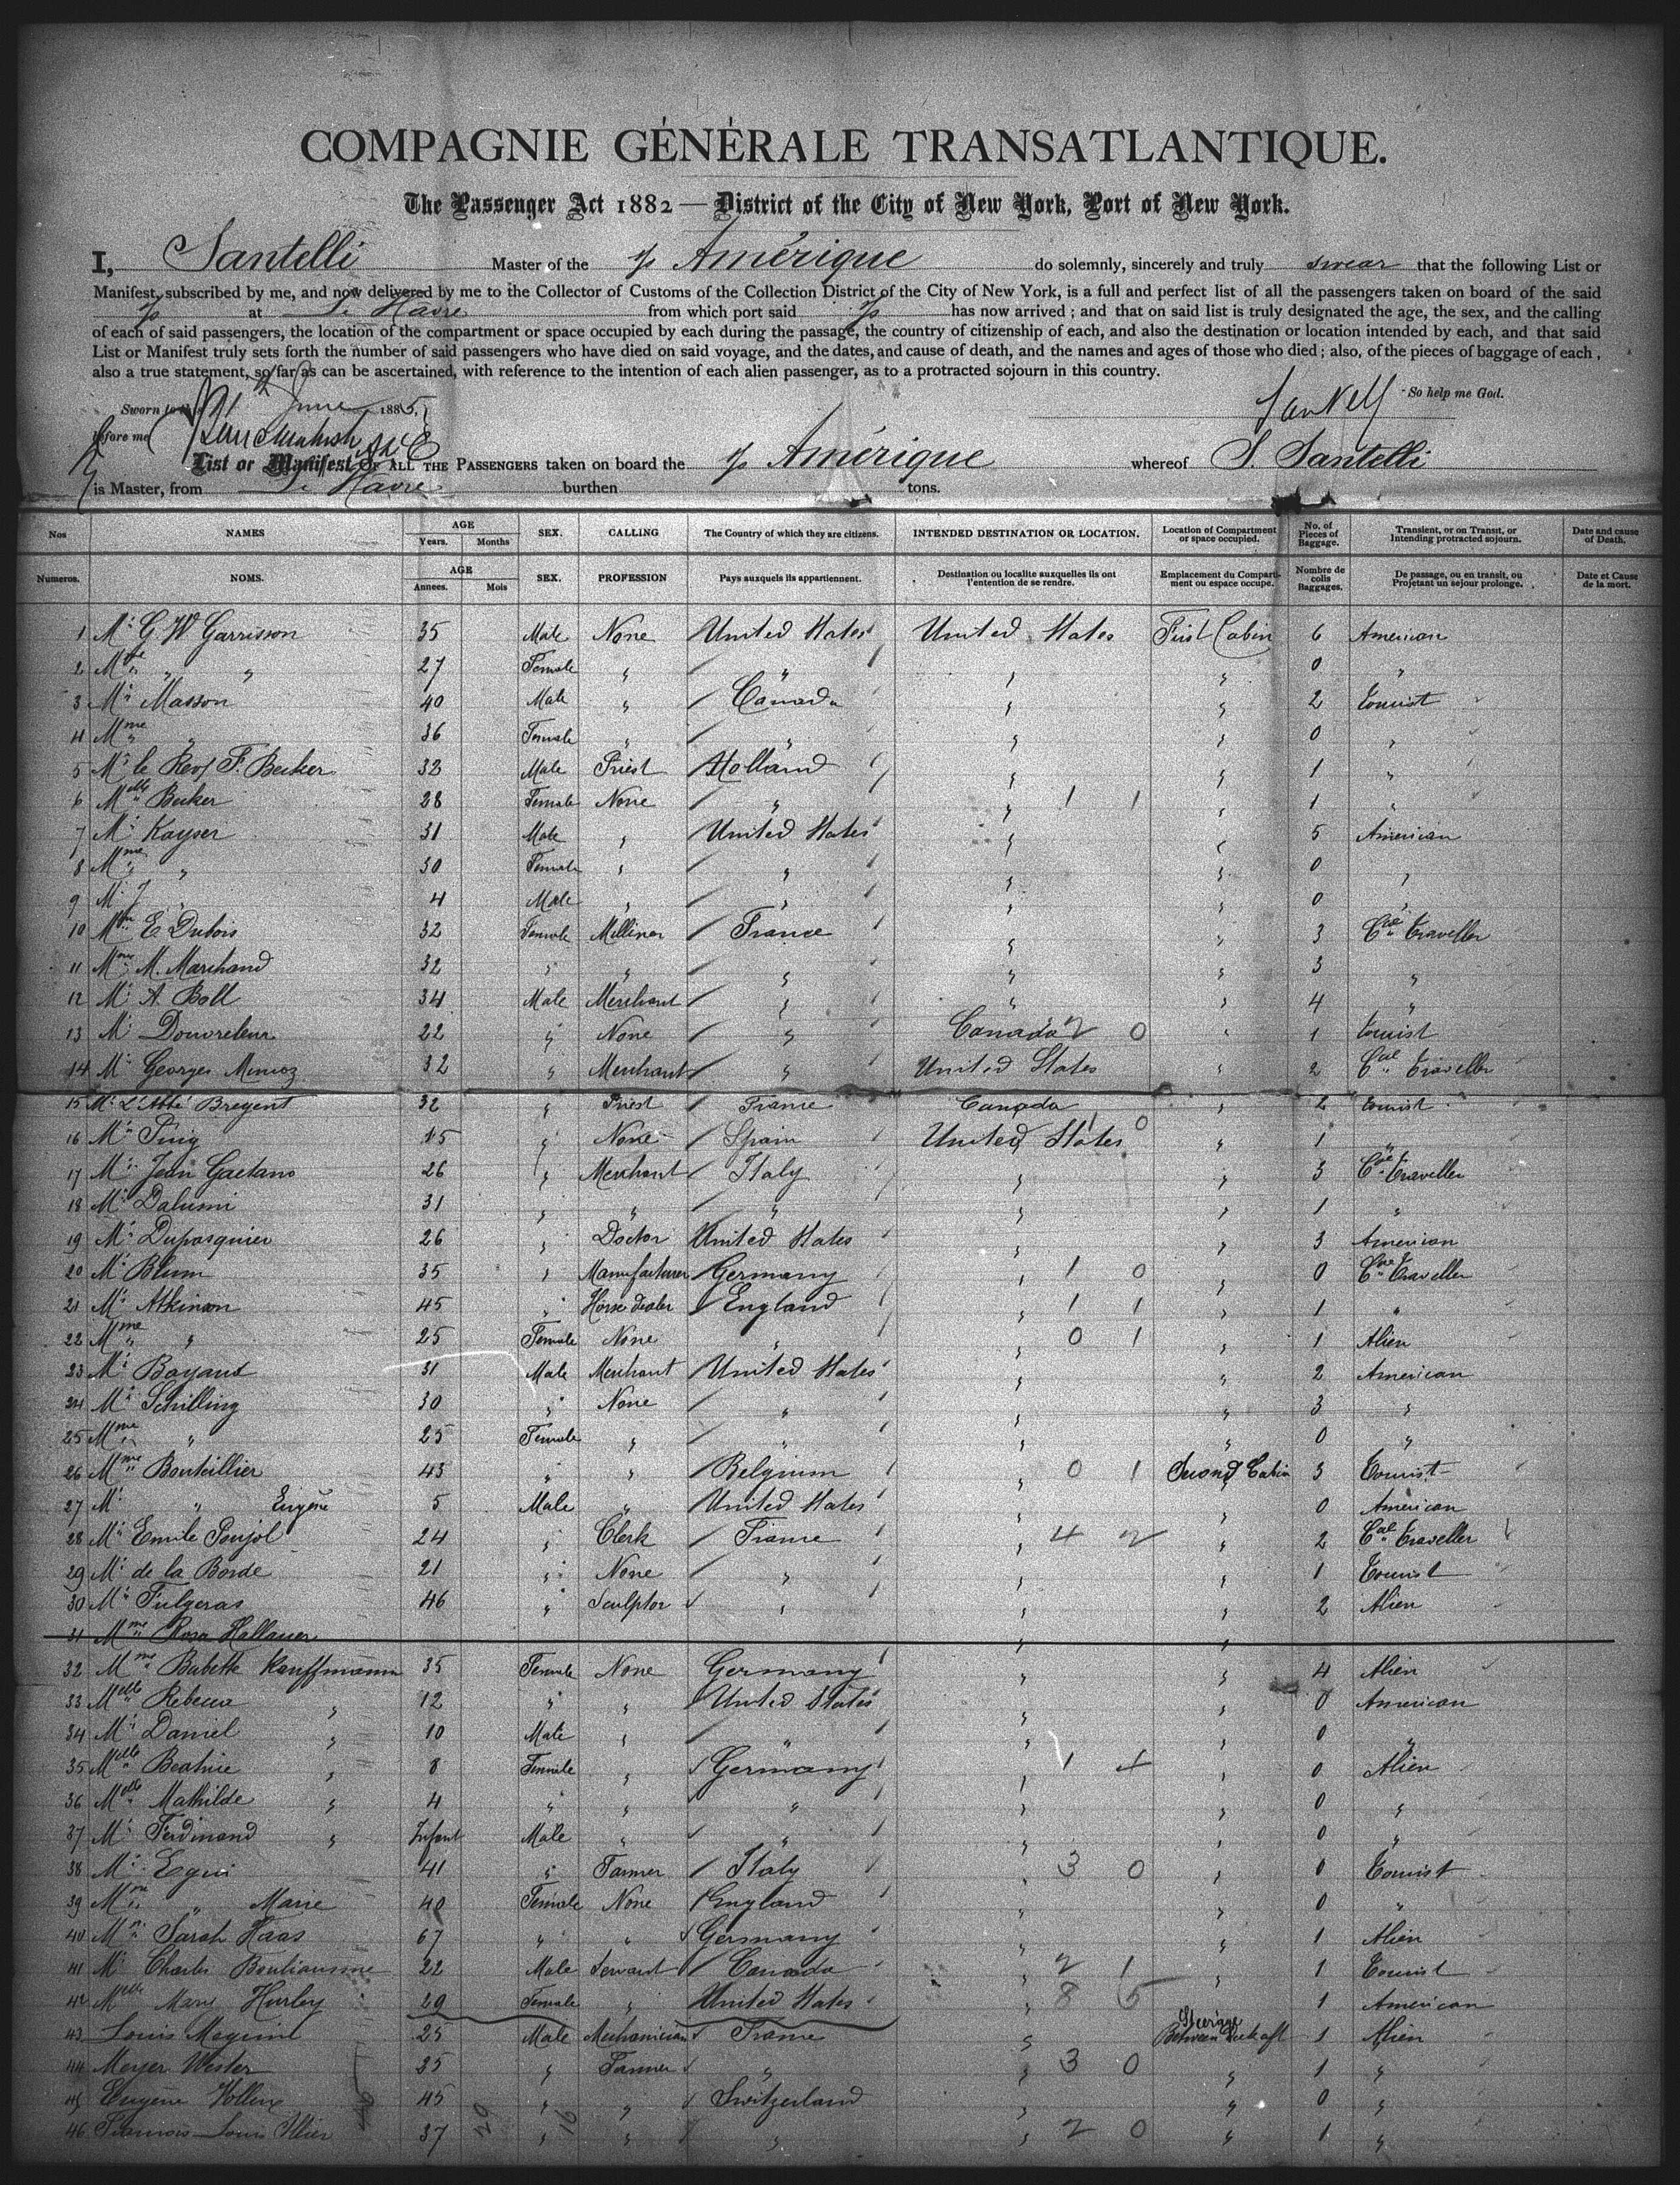 COMPAGNIE GÉNÉRALE TRANSATLANTIQUE.
The Passenger Act 1882 — District of the City of New York, Port of New York.
I, Santelli Master of the s/s Amérique do solemnly, sincerely and truly swear that the following List or
Manifest, subscribed by me, and now delivered by me to the Collector of Customs of the Collection District of the City of New York, is a full and perfect list of all the passengers taken on board of the said
s/s at Le Havre from which port said s/s has now arrived; and that on said list is truly designated the age, the sex, and the calling
of each of said passengers, the location of the compartment or space occupied by each during the passage, the country of citizenship of each, and also the destination or location intended by each, and that said
List or Manifest truly sets forth the number of said passengers who have died on said voyage, and the dates, and cause of death, and the names and ages of those who died; also, of the pieces of baggage of each,
also a true statement, so far as can be ascertained, with reference to the intention of each alien passenger, as to a protracted sojourn in this country.
So help me God.
Sworn to this June 1885,
before me
List or Manifest OF ALL THE PASSENGERS taken on board the s/s Amérique whereof S. Santelli
is Master, from Le Havre burthen tons.
Nos NAMES AGE Years. Months SEX. CALLING The Country of which they are citizens. INTENDED DESTINATION OR LOCATION. Location of Compartment or space occupied. No. of Pieces of Baggage. Transient, or on Transit, or Intending protracted sojourn. Date and cause of Death.
Numeros. NOMS. AGE Annees. Mois SEX. PROFESSION Pays auxquels ils appartiennent. Destination ou localite auxquelles ils ont l'entention de se rendre. Emplacement du Compartiment ou espace occupe. Nombre de colis Baggages. De passage, ou en transit, ou Projetant un sejour prolonge. Date et Cause de la mort.
1 Mr G. W Garrisson 35 Male None United States United States First Cabin 6 American
2 Mme " " 27 Female " " " " 0 "
3 Mr Masson 40 Male " Canada " " 2 Tourist
4 Mme " 36 Female " " " " 0 "
5 Mr le Rev F. Becker 32 Male Priest Holland " " 1 "
6 Melle Becker 28 Female None " " 1 1 " 1 "
7 Mr Kayser 31 Male " United States " " 5 American
8 Mme " 30 Female " " " " 0 "
9 Mr J " 4 Male " " " " 0 "
10 Mme E Dubois 32 Female Milliner France " " 3 Cial Traveller
11 Mme M. Marchand 32 " " " " " 3 "
12 Mr A. Boll 34 Male Merchant " " " 4 "
13 Mr 22 " None " Canada 2 0 " 1 Tourist
14 Mr Georges 32 " Merchant " United States " 2 Cial Traveller
15 Mr L'Abbé Bregent 32 " Priest France Canada " 2 Tourist
16 Mr Puig " None Spain United States 1 0 " 1 "
17 Mr Jean Gaetano 26 " Merchant Italy " " 3 Cial Traveller
18 Mr Dalumi 31 " " " " " 1 "
19 Mr Dupasquier 26 " Doctor United States " " 3 American
20 Mr Blum 35 " Manufacturer Germany " 1 0 " 0 Cial Traveller
21 Mr Atkinson 45 " Horse dealer England " 1 1 " 1 "
22 Mme " 25 Female None " " 0 1 " 1 Alien
23 Mr Bayaud 31 Male Merchant United States " " 2 American
24 Mr Schilling 30 " None " " " 3 "
25 Mme " 25 Female " " " " 0 "
26 Mme Bouteillier 43 " " Belgium " 0 1 Second Cabin 3 Tourist
27 Mr " Eugène 5 Male " United States " " 0 American
28 Mr Emile Poujol 24 " Clerk France " 4 2 " 2 Cial Traveller
29 Mr de la Borde 21 " None " " " 1 Tourist
30 Mr Fulgeras 46 " Sculptor " " " 2 Alien
31 Mme Rosa Hallauer " "
32 Mme Babette Kauffmann 35 Female None Germany " " 4 Alien
33 Melle Rebecca " 12 " " United States " " 0 American
34 Mr Daniel " 10 Male " " " " 0 "
35 Melle Beatrice " 8 Female " Germany " 1 4 " 0 Alien
36 Melle Mathilde " 4 " " " " " 0 "
37 Mr Ferdinand " Infant Male " " " " 0 "
38 Mr Egui 41 " Farmer Italy " 3 0 " 0 Tourist
39 Mme " Marie 40 Female None England " " 0 "
40 Mme Sarah Haas 67 " " Germany " " 1 Alien
41 Mr Charles 22 Male Servant Canada " 2 1 " 1 Tourist
42 Melle Marie Hurley 29 Female " United States " 8 5 1 American
43 Louis 25 Male Mechanician France " Steerage Between Deck aft 1 Alien
44 Meyer Wester 25 " Farmer " " 3 0 " 1 "
45 Eugène 45 " " Switzerland " " 0 "
46 François Louis 37 " " " " 2 0 " 1 "